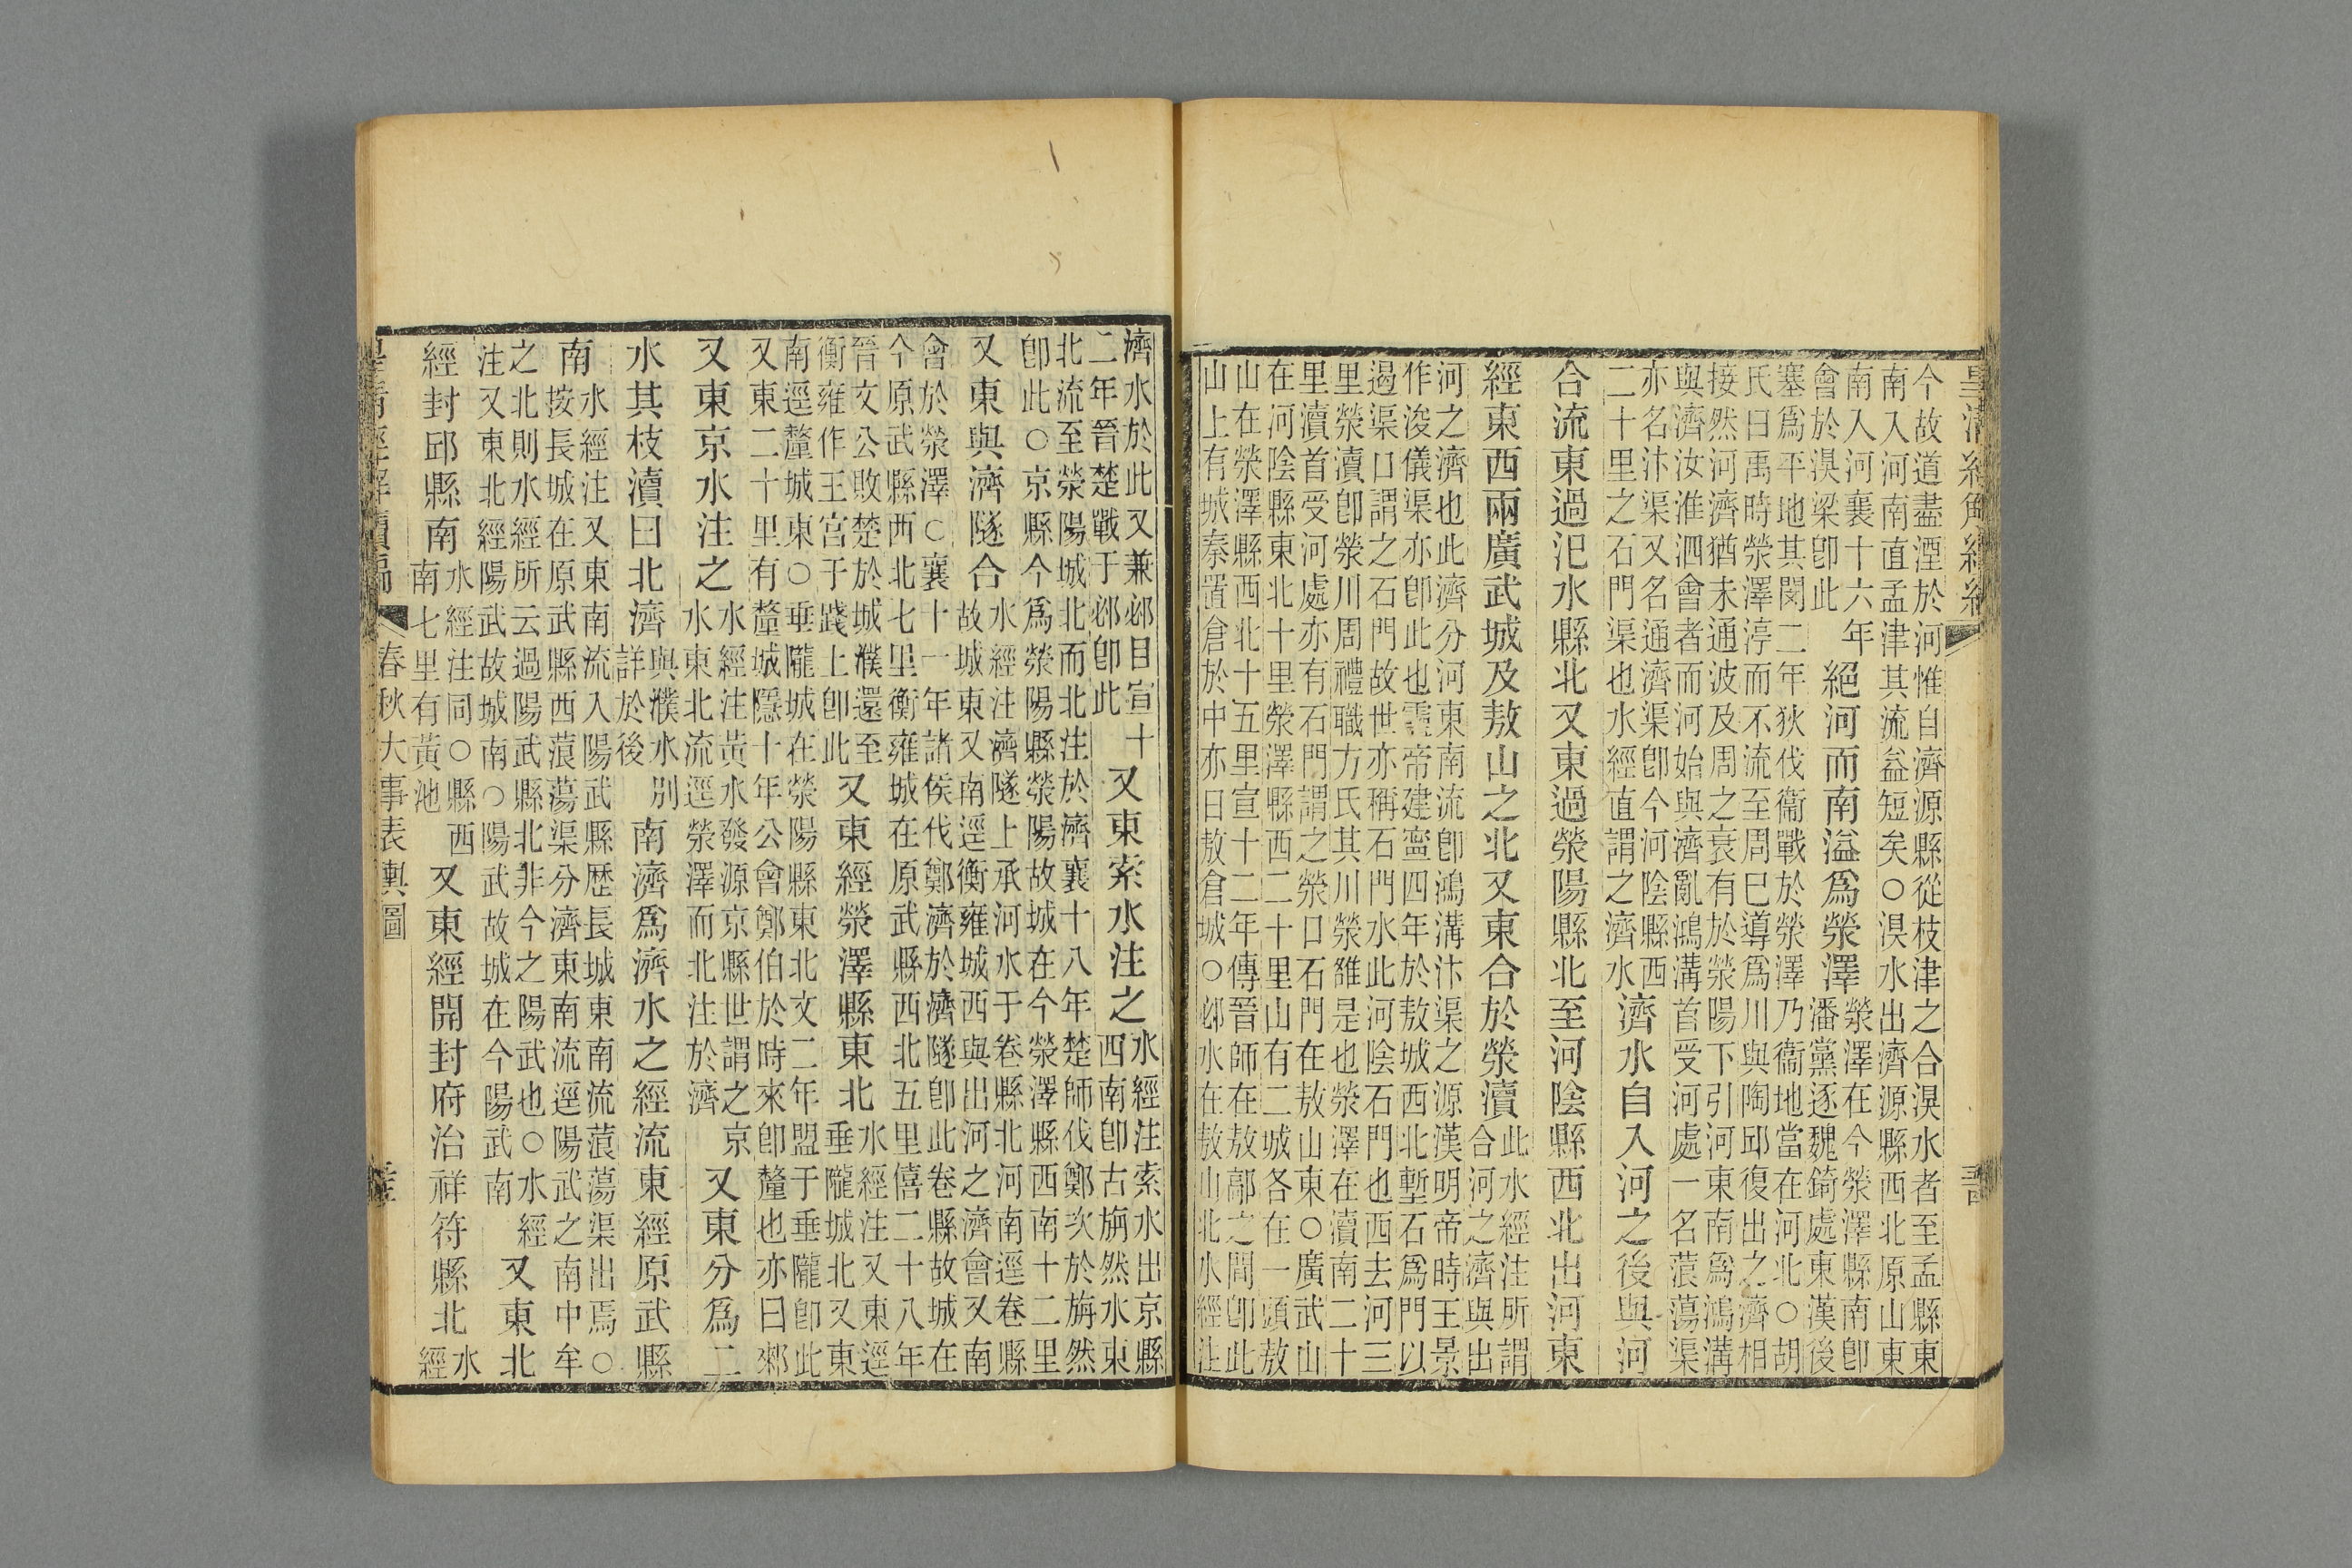 皇清經解續編
今故道盡湮於河惟自濟源縣從枝津之合湨水者至孟縣東
南入河南直孟津其流益短矣○湨水出濟源縣西北原山東
南入河襄十六年
會於湨梁卽此
絕河而南溢爲滎澤
滎澤在今滎澤縣南卽
潘黨逐魏錡處東漢後
塞爲平地其閔二年狄伐衞戰於滎澤乃衞地當在河北○胡
氏曰禹時滎澤渟而不流至周巳導爲川與陶邱復出之濟相
接然河濟猶未通波及周之衰有於滎陽下引河東南爲鴻溝
與濟汝淮泗會者而河始與濟亂鴻溝首受河處一名蒗蕩渠
亦名汴渠又名通濟渠卽今河陰縣西
二十里之石門渠也水經直謂之濟水
濟水自入河之後與河
合流東過汜水縣北又東過滎陽縣北至河陰縣西北出河東
經東西兩廣武城及敖山之北又東合於滎瀆
此水經注所謂
合河之濟與出
河之濟也此濟分河東南流卽鴻溝汴渠之源漢明帝時王景
作浚儀渠亦卽此也靈帝建寧四年於敖城西北塹石爲門以
遏渠口謂之石門故世亦稱石門水此河陰石門也西去河三
里滎瀆卽滎川周禮職方氏其川滎雒是也滎澤在瀆南二十
里瀆首受河處亦有石門謂之滎口石門在敖山東○廣武山
在河陰縣東北十里滎澤縣西二十里山有二城各在一頭敖
山在滎澤縣西北十五里宣十二年傳晉師在敖鄗之間卽此
山上有城秦置倉於中亦曰敖倉城○邲水在敖山北水經注
濟水於此又兼邲目宣十
二年晉楚戰于邲卽此
又東索水注之
水經注索水出京縣
西南卽古旃然水東
北流至滎陽城北而北注於濟襄十八年楚師伐鄭次於旃然
卽此○京縣今爲滎陽縣滎陽故城在今滎澤縣西南十二里
又東與濟隧合
水經注濟隧上承河水于卷縣北河南逕卷縣
故城東又南逕衡雍城西與出河之濟會又南
會於滎澤○襄十一年諸侯伐鄭濟於濟隧卽此卷縣故城在
今原武縣西北七里衡雍城在原武縣西北五里僖二十八年
晉文公敗楚於城濮還至
衡雍作王宮于踐土卽此
又東經滎澤縣東北
水經注又東逕
垂隴城北又東
南逕釐城東○垂隴城在滎陽縣東北文二年盟于垂隴卽此
又東二十里有釐城隱十年公會鄭伯於時來卽釐也亦曰郲
又東京水注之
水經注黃水發源京縣世謂之京
水東北流逕滎澤而北注於濟
又東分爲二
水其枝瀆曰北濟
與濮水別
詳於後
南濟爲濟水之經流東經原武縣
南
水經注又東南流入陽武縣歷長城東南流蒗蕩渠出焉○
按長城在原武縣西蒗蕩渠分濟東南流逕陽武之南中牟
之北則水經所云過陽武縣北非今之陽武也○水經
注又東北經陽武故城南○陽武故城在今陽武南
又東北
經封邱縣南
水經注同○縣西
南七里有黃池
又東經開封府治祥符縣北
水
經
皇清經解續編
春秋大事表輿圖